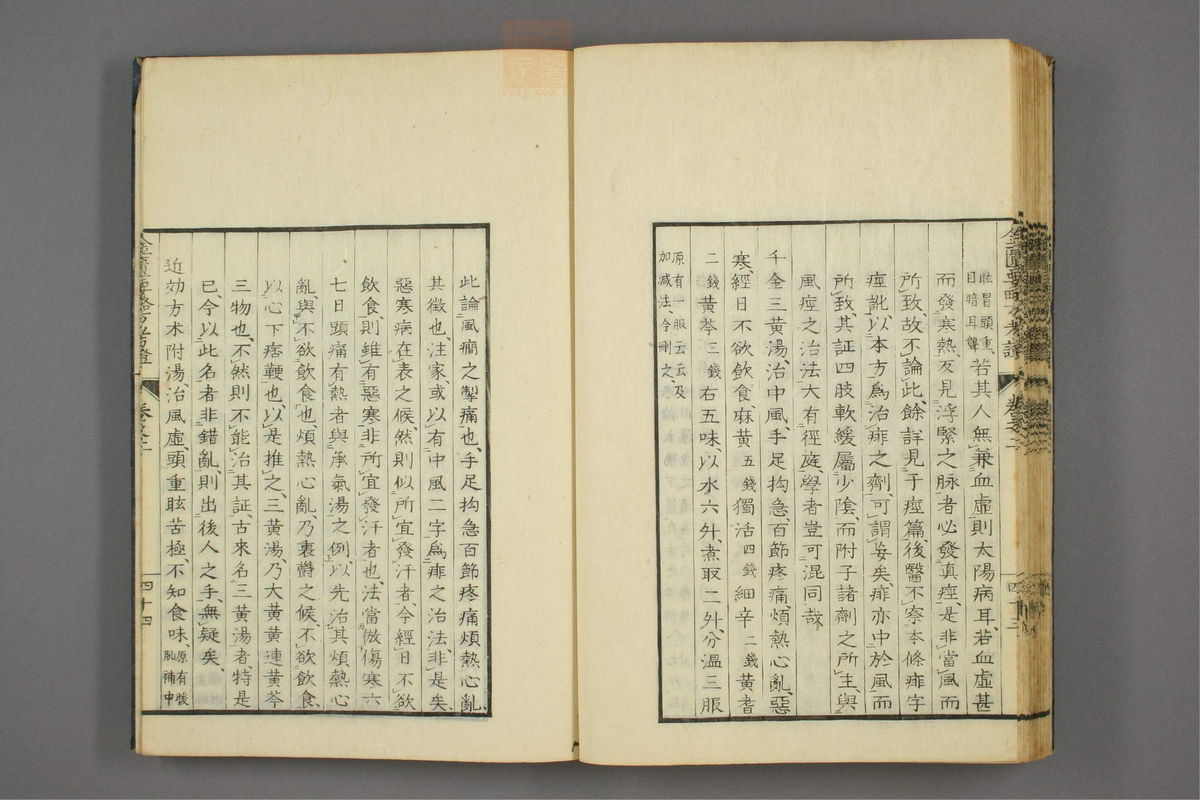 眩冒頭重、目暗耳聾 若其人無兼血虛則太陽病耳、若血虛甚
而發寒熱、反見浮緊之脉者必發真痙、是非當風而
所致、故不論此、餘詳見于痙篇、後醫不察本條痱字
痙訛、以本方爲治痱之劑、可謂妄矣、痱亦中於風而
所致、其証四肢軟緩屬少陰、而附子諸劑之所主、與
風痙之治法大有徑庭、學者豈可混同哉
千金三黃湯、治中風手足拘急、百節疼痛、煩熱心亂、惡
寒、經日不欲飲食、麻黃五錢獨活四錢細辛二錢黃耆
二錢黃芩三錢右五味、以水六升、煮取二升、分溫三服
原有一服云云及加減法、今刪之、
此論風癎之掣痛也、手足拘急百節疼痛煩熱心亂、
其徵也、注家、或以有中風二字、爲痱之治法、非是矣、
惡寒病在表之候、然則似所宜發汗者、今經日不欲
飲食、則雖有惡寒、非所宜發汗者也、法當倣傷寒六
七日頭痛有熱者與承氣湯之例、以先治其煩熱心
亂、與不欲飲食也、煩熱心亂、乃裏欝之候、不欲飲食、
以心下痞鞕也、以是推之、三黃湯、乃大黃黃連黃芩
三物也、不然則不能治其証、古來名三黃湯者特是
已、今以此名者非錯亂、則出後人之手、無疑矣、
近効方朮附湯、治風虛、頭重眩苦極、不知食味、原有暖肌補中
四十四